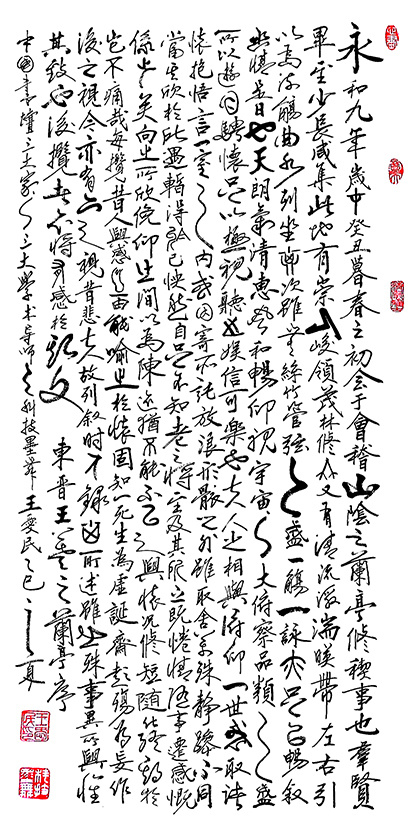 永和九年歲中癸丑暮春之初会于會稽山陰之蘭亭修稧事也羣賢
畢至少長咸集此地有崇山峻領茂林修竹又有清流激湍暎帶左右引
以為流觴曲水列坐其次雖無絲竹管弦之盛一觴一詠亦足以暢敘
幽情是日也天朗氣清惠風和暢仰觀宇宙之大俯察品類之盛
所以遊目騁懷足以極視聽之娱信可樂也夫人之相與俯仰一世或取諸
懷抱悟言一室之內或因寄所託放浪形骸之外雖取舍萬殊靜躁不同
當其欣於所遇暫得於己快然自足不知老之將至及其所之既惓情隨事遷感慨
係之矣向之所欣俛仰之間以為陳迹猶不能不以之興懷況修短隨化終期於
豈不痛哉每攬昔人興感之由能喻之於懷固知一死生為虛誕齊彭殤為妄作
後之視今亦有今之視昔悲夫故列敘時人錄其所述雖世殊事異所興懷
其致也後攬者亦將有感於斯文 東晉王羲之蘭亭序
中國書壇三大家之三大學术导师之科技墨舞王愛民乙巳之夏